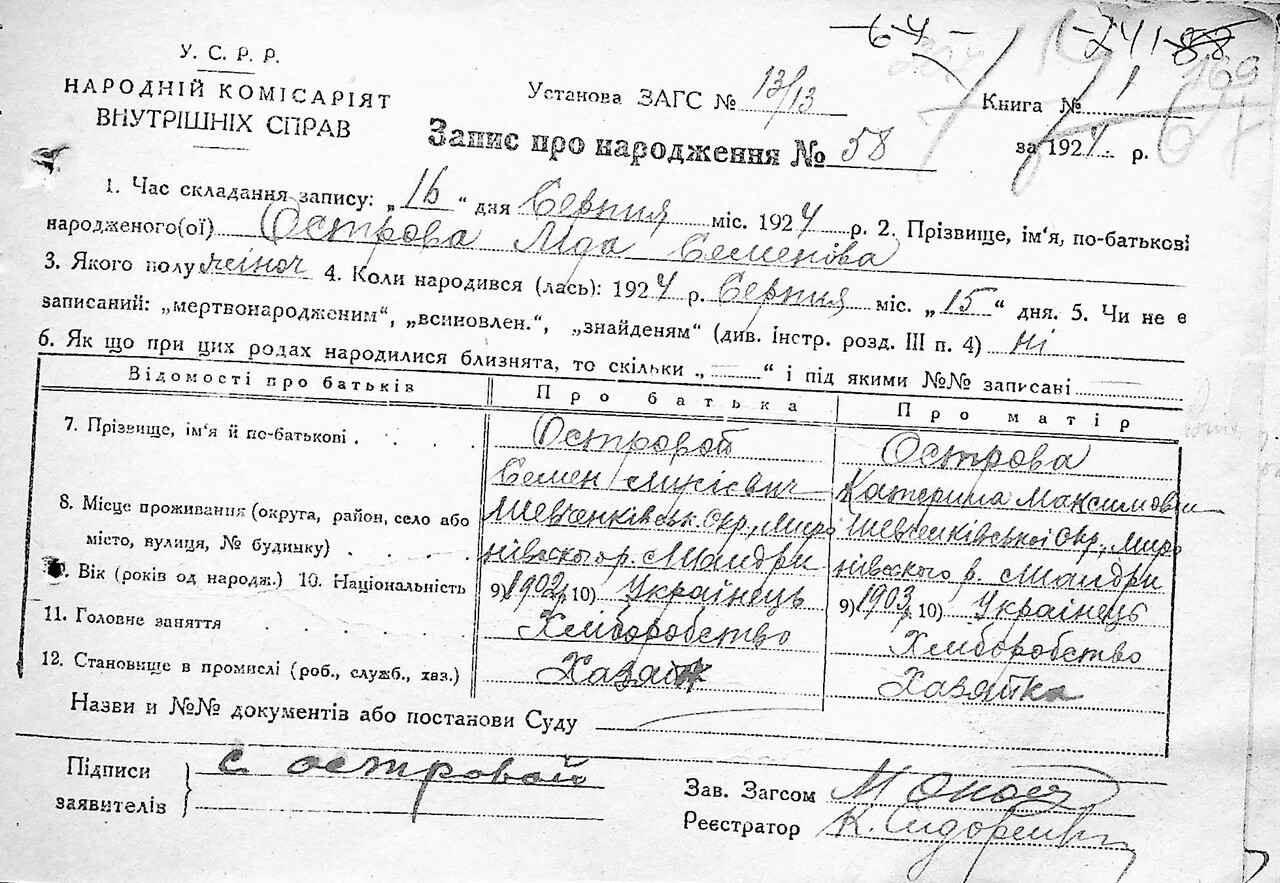 -64- -241-88
169
У. С. Р. Р.
НАРОДНІЙ КОМІСАРІЯТ
ВНУТРІШНІХ СПРАВ
Установа ЗАГС № 13/13
Книга № 1
Запис про народження № 58
за 1924 р.
1. Час складання запису: „16“ дня Серпня міс. 1924 р. 2. Прізвище, ім'я, по-батькові
народженого(ої) Острова Ліда Семенова
3. Якого полу жіноч 4. Коли народився (лась): 1924 р. Серпня міс. „15“ дня. 5. Чи не є
записаний: „мертвонародженим“, „всиновлен.“, „знайденям“ (див. Інстр. розд. III п. 4) ні
6. Як що при цих родах народилися близнята, то скільки „ “ і під якими №№ записані
Відомості про батьків Про батька Про матір
7. Прізвище, ім'я й по-батькові Островой Острова
Семен Микієвич Катерина Максимовн
8. Місце проживання (округа, район, село або Шевченківськ. Окр., Миро Шевченківської Окр., Миро
місто, вулиця, № будинку) нівського р. Шандри нівського р. Шандри
9. Вік (років од народж.) 10. Національність 9) 1902, 10) Українець 9) 1903, 10) Українець
11. Головне заняття Хліборобство Хліборобство
12. Становище в промислі (роб., служб., хаз.) Хазяїн Хазяйка
Назви и №№ документів або постанови Суду
Підписи с островой
заявителів
Зав. Загсом
Реєстратор К.